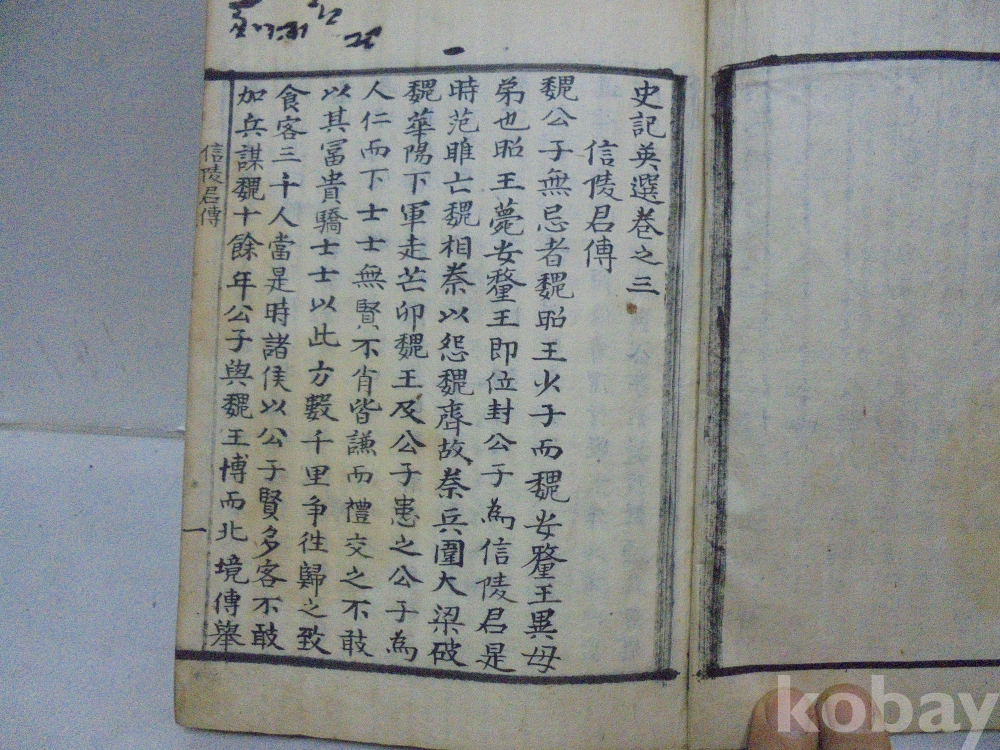 史記英選卷之三
信陵君傳
魏公子無忌者魏昭王少子而魏安釐王異母
弟也昭王薨安釐王即位封公子為信陵君是
時范睢亡魏相秦以怨魏齊故秦兵圍大梁破
魏華陽下軍走芒卯魏王及公子患之公子為
人仁而下士士無賢不肖皆謙而禮交之不敢
以其富貴驕士士以此方數千里爭徃歸之致
食客三千人當是時諸侯以公子賢多客不敢
加兵謀魏十餘年公子與魏王博而北境傳舉
信陵君傳
一
kobay